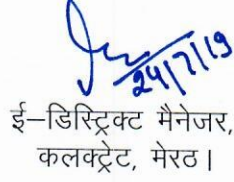 24/7/19
ई–डिस्ट्रिक्ट मैनेजर,
कलक्ट्रेट, मेरठ।